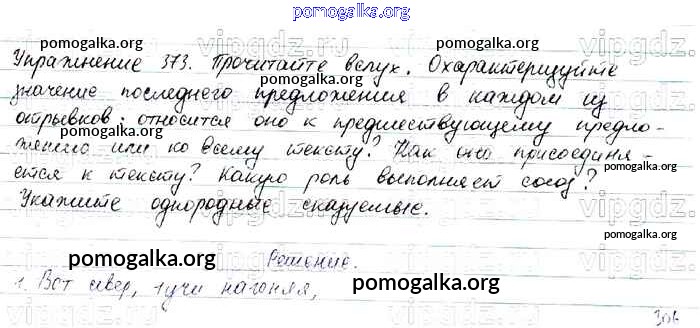 pomogalka.org
Упражнение 373. Прочитайте вслух. Охарактеризуйте
значение последнего предложения в каждом из
отрывков: относится оно к предшествующему предло-
жению или ко всему тексту? Как оно присоединя-
ется к тексту? Какую роль выполняет союз?
Укажите однородные сказуемые.
Решение.
1. Вот север, тучи нагоняя,
306
pomogalka.org
pomogalka.org
pomogalka.org
pomogalka.org
pomogalka.org
pomogalka.org
pomogalka.org
pomogalka.org
pomogalka.org